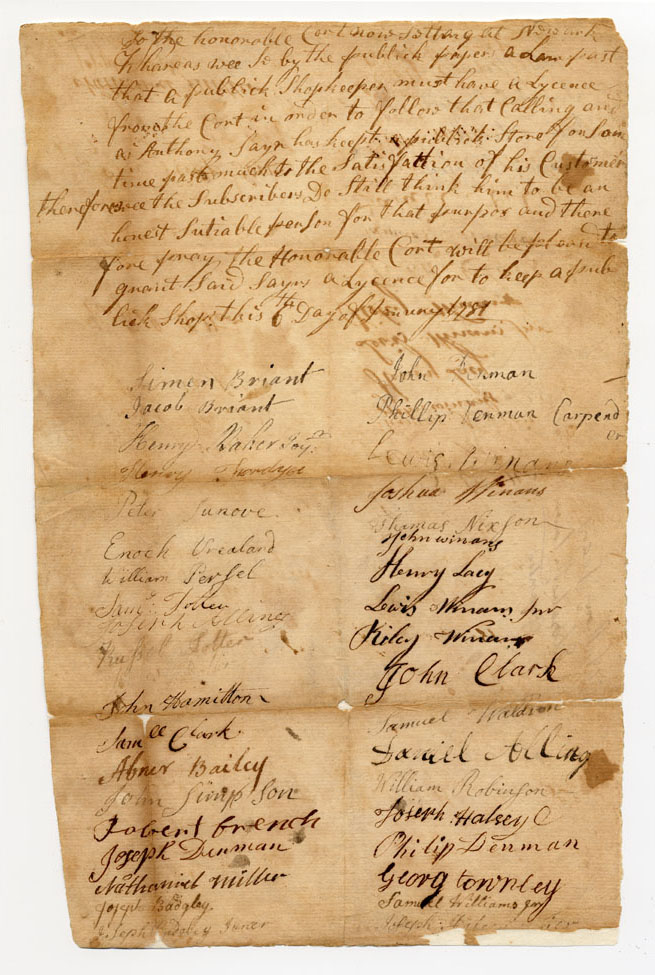 To the honorable Cort now Setting at Newark
Whareas wee Se by the publick papers a Law past
that a publick Shopkeeper must have a Lycence
from the Cort in order to follow that Calling and
as Anthony Sayr has keept a publick Store for Som
time past much to the Satisfattion of his Customer
therefore wee the Subscribers Do Still think him to be an
honest Sutiable person for that purpos and there
fore pray the Honorable Cort will be pleasd to
grant Said Sayrs a Lycence for to keep a pub
lick Shop this 6th Day of 1781
Simen Briant
Jacob Briant
Henry Baker Jayr
Henry
Peter
Enoch Vrealand
William Persel
Saml
Joseph Alling
John Hamilton
Samll Clark
Abner Bailey
John Simpson
Robert French
Joseph Denman
Nathaniel Miller
Joseph Badgley
Joseph Badgley Juner
John Denman
Phillip Denman Carpend
er
Lewis Winans
Joshua Winans
Thamas Nixson
John winans
Henry Lacy
Lewis Winans Jnr
Kirley Winans
John Clark
Samuel Waldron
Daniel Alling
William Robinson
Joseph Halsey C
Philip Denman
Georg townley
Samuel Williams Jnr
Joseph